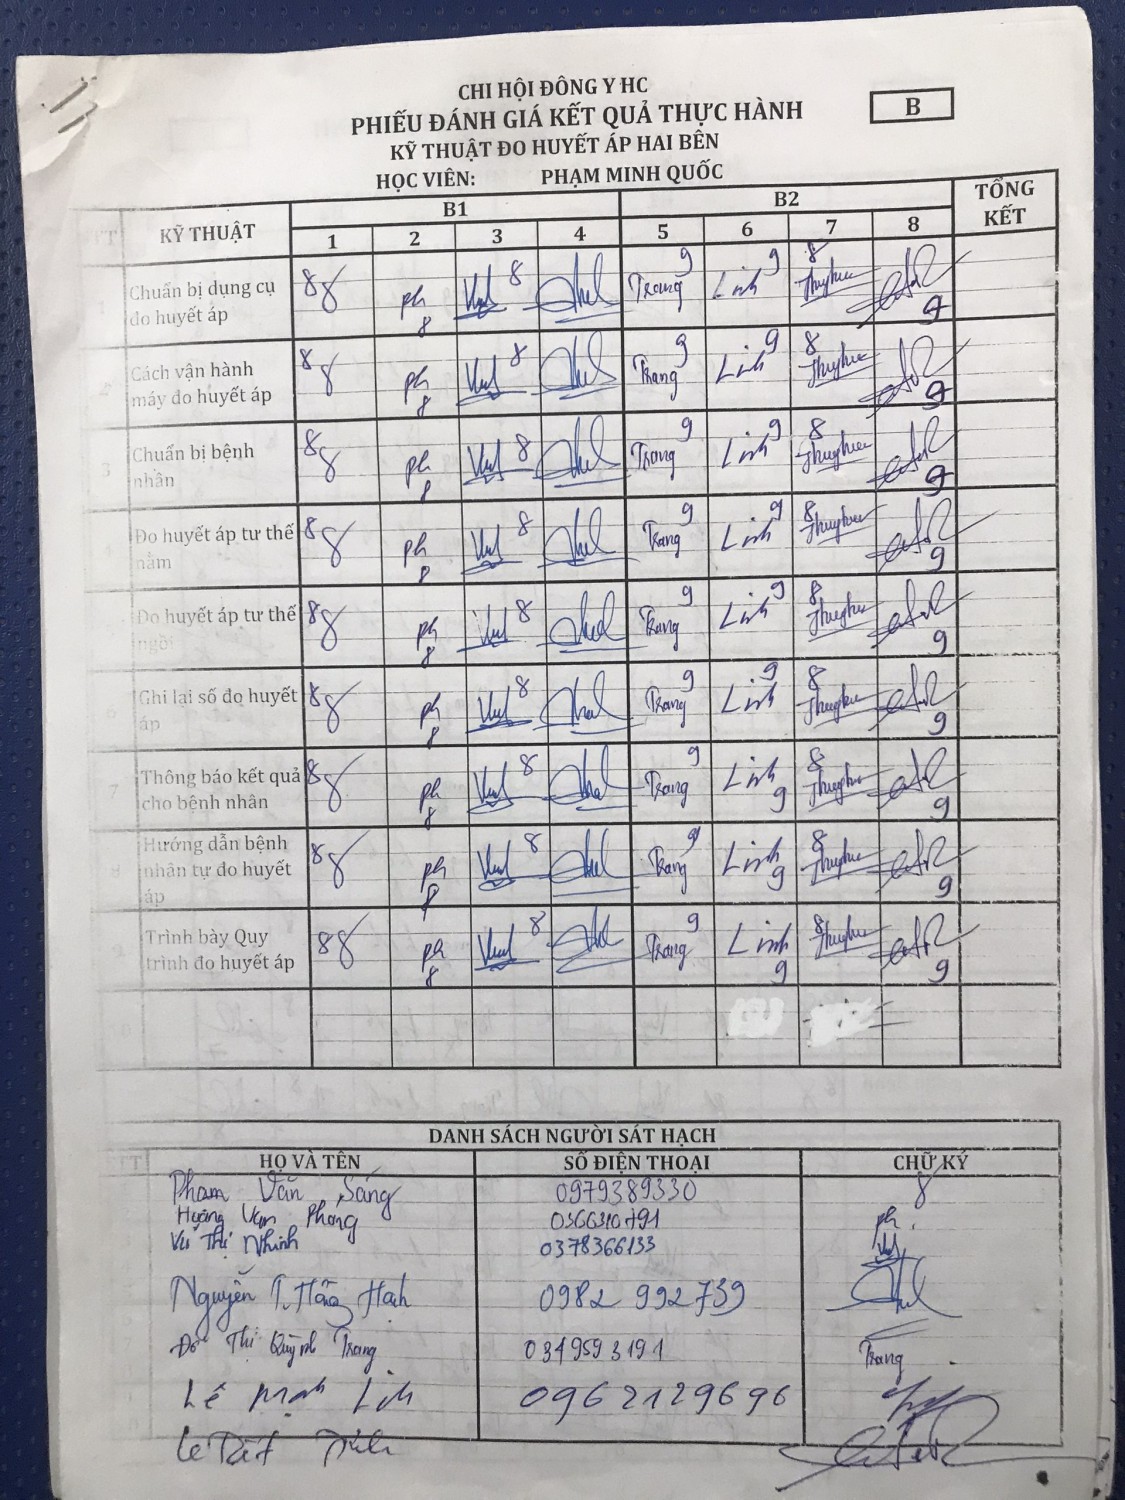 CHI HỘI ĐÔNG Y HC
PHIẾU ĐÁNH GIÁ KẾT QUẢ THỰC HÀNH
B
KỸ THUẬT ĐO HUYẾT ÁP HAI BÊN
HỌC VIÊN: PHẠM MINH QUỐC
TT KỸ THUẬT B1 B2 TỔNG KẾT
1 2 3 4 5 6 7 8
1 Chuẩn bị dụng cụ đo huyết áp 8 8 ph 8 8 Trang 9 Linh 9 8 9
2 Cách vận hành máy đo huyết áp 8 8 ph 8 8 Trang 9 Linh 9 8 9
3 Chuẩn bị bệnh nhân 8 8 ph 8 8 Trang 9 Linh 9 8 9
4 Đo huyết áp tư thế nằm 8 8 ph 8 8 Trang 9 Linh 9 8 9
Đo huyết áp tư thế ngồi 8 8 ph 8 8 Trang 9 Linh 9 8 9
Ghi lại số đo huyết áp 8 8 ph 8 8 Trang 9 Linh 9 8 9
7 Thông báo kết quả cho bệnh nhân 8 8 ph 8 8 Trang 9 Linh 9 8 9
8 Hướng dẫn bệnh nhân tự đo huyết áp 8 8 ph 8 8 Trang 9 Linh 9 8 9
Trình bày Quy trình đo huyết áp 8 8 ph 8 8 Trang 9 Linh 9 8 9
DANH SÁCH NGƯỜI SÁT HẠCH
TT HỌ VÀ TÊN SỐ ĐIỆN THOẠI CHỮ KÝ
Phạm Văn Sáng 0979389330 8
Văn Phóng ph
Vũ Thị Nhinh 0378366133
Nguyễn T. Hồng Hạnh 0982 992739
Đỗ Thị Quỳnh Trang 0349593191 Trang
Lê Mạnh Linh 0962129696
Lê Tất